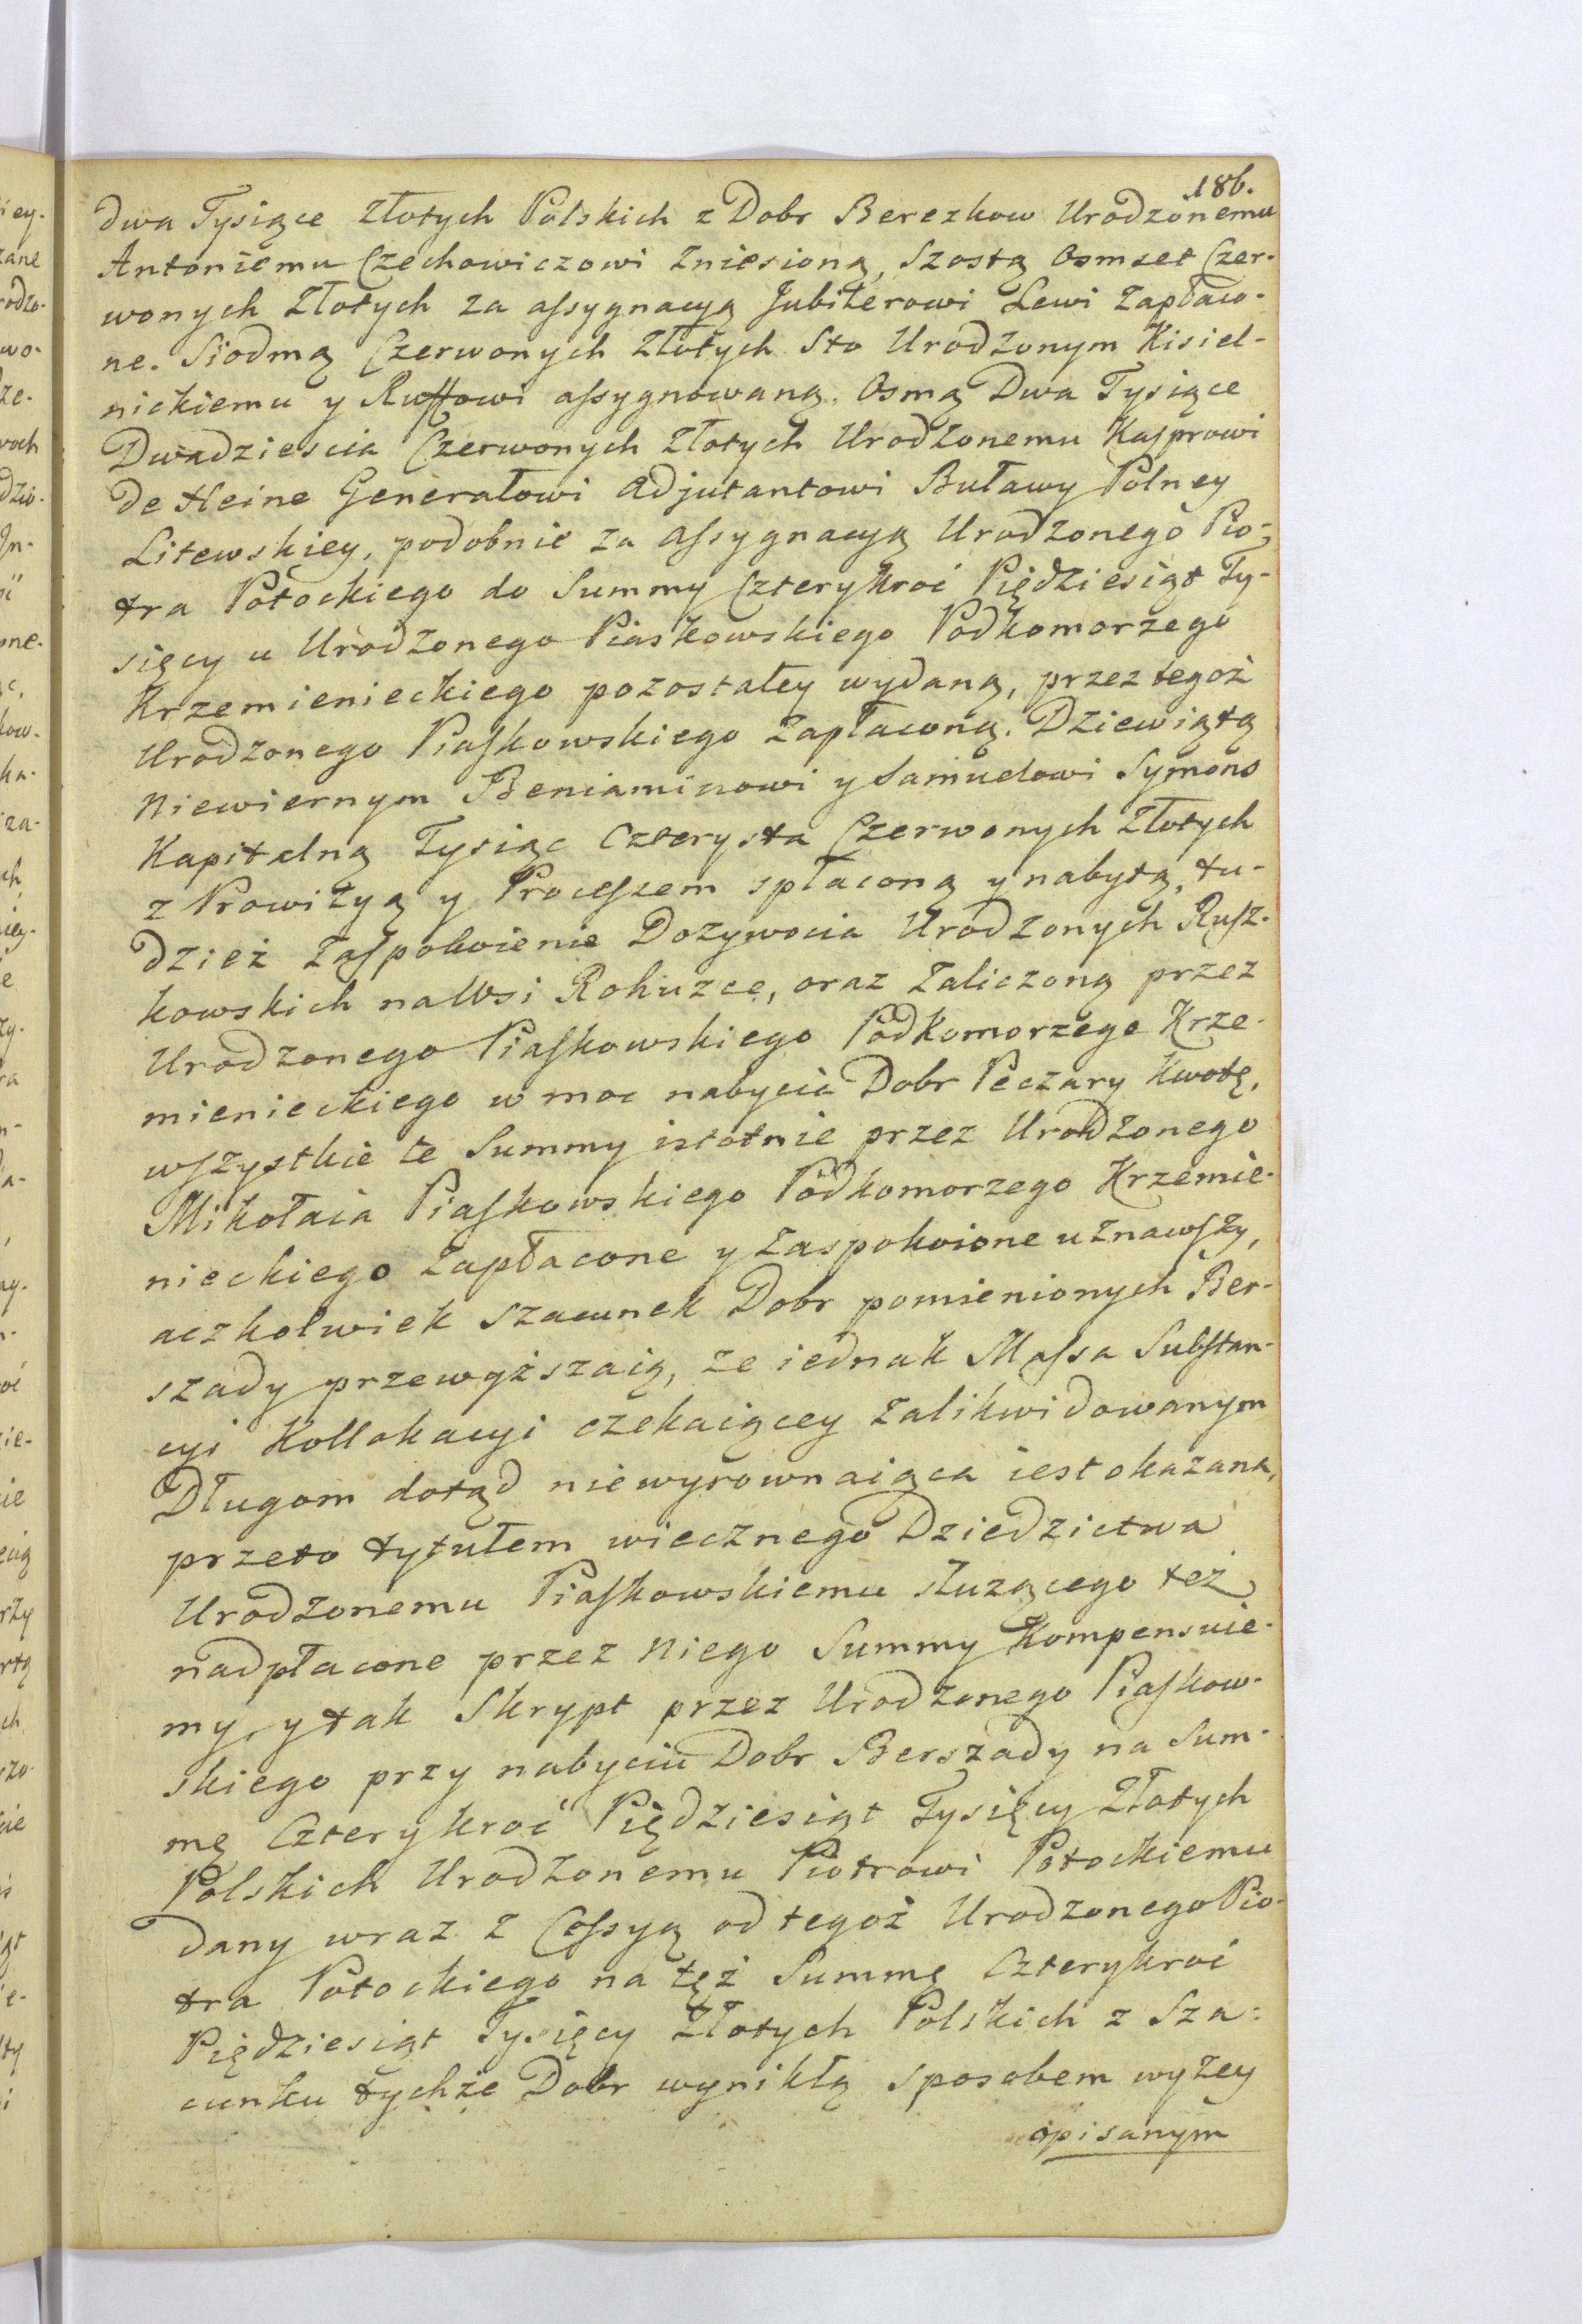 186.
dwa Tysiące Złotych Polskich z Dobr Berezkow Urodzonemu
Antoniemu Czechowiczowi zniesioną, Szostą Osmset Czer-
wonych Złotych za assygnacyą Jubilerowi Lewi Zapłaco-
ne. Siodmą Czerwonych Złotych Sto Urodzonym Kisiel-
nickiemu y Ruffowi assygnowaną. Osmą Dwa Tysiące
Dwadziescia Czerwonych Złotych Urodzonemu Kasprowi
de Heine Generałowi Adjutantowi Buławy Polney
Litewskiey, podobnie za Assygnacyą Urodzonego Pio-
tra Potockiego do Summy Czterykroć Pięдziesiąt Ty-
sięcy u Urodzonego Piaskowskiego Podkomorzego
Krzemienieckiego pozostałey wydaną, przez tegoż
Urodzonego Piaskowskiego Zapłaconą. Dziewiątą
Niewiernym Beniaminowi y Samuelowi Symons
Kapitalną Tysiąc Czterysta Czerwonych Złotych
z Prowizyą y Processem spłaconą y nabytą, tu-
dzież Zaspokoienie Dozywocia Urodzonych Rusz-
kowskich na Wsi Rohuzce, oraz Zaliczoną przez
Urodzonego Piaskowskiego Podkomorzego Krze-
mienieckiego w moc nabycia Dobr Peczary Kwotę,
wszystkie te Summy istotnie przez Urodzonego
Mikołaia Piaskowskiego Podkomorzego Krzemie-
nieckiego Zapłacone y Zaspokoione uznawszy,
aczkolwiek szacunek Dobr pomienionych Ber-
szady przewyższaią, że iednak Massa Substan-
cyi Kollokacyi czekaiącey Zalikwidowanym
Długom dotąd niewyrownaiąca iest okazana,
przeto tytułem wiecznego Dziedzictwa
Urodzonemu Piaskowskiemu służącego też
nadpłacone przez Niego Summy Kompensuie-
my, y tak Skrypt przez Urodzonego Piaskow-
skiego przy nabyciu Dobr Berszady na Sum-
mę Czterykroć Pięдziesiąt Tysięcy Złotych
Polskich Urodzonemu Piotrowi Potockiemu
Dany wraz z Cessyą od tegoż Urodzonego Pio-
tra Potockiego na tęż Summę Czterykroć
Piędziesiąt Tysięcy Złotych Polskich z Sza-
cunku tychże Dobr wynikłą sposobem wyżey
opisanym